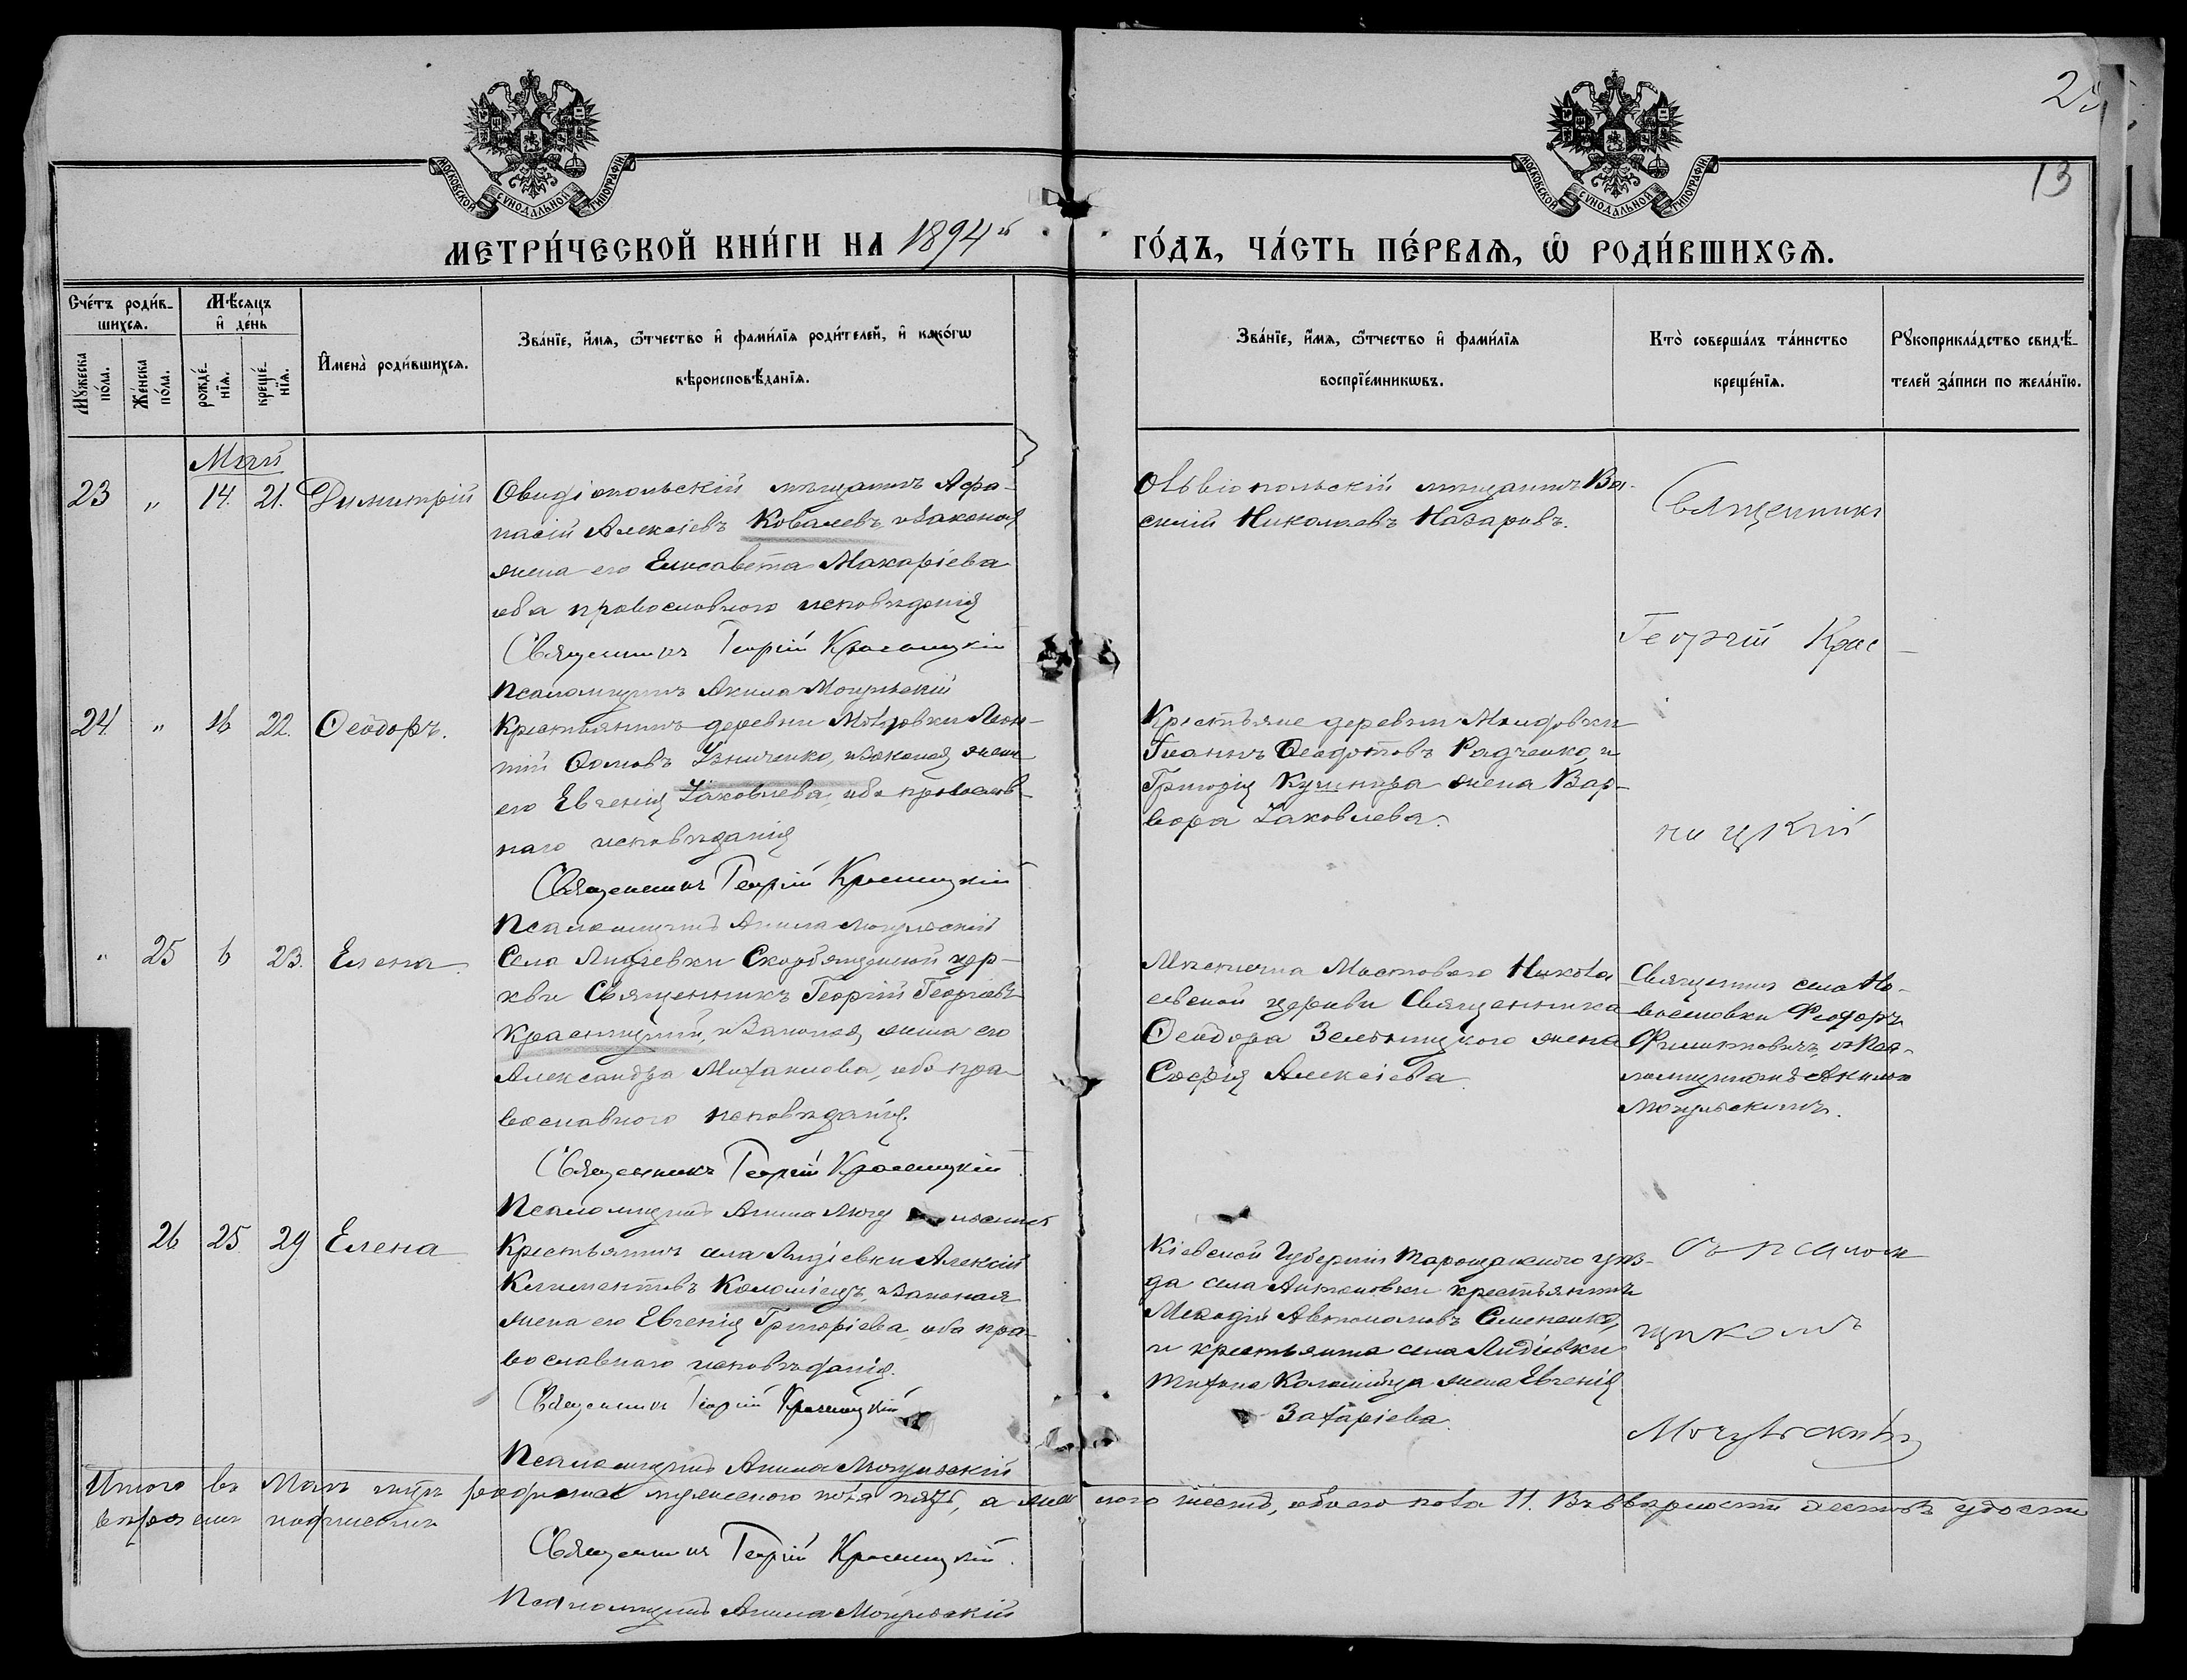 25
13
МОСКОВСКОЙ СѴНОДАЛЬНОЙ ТИПОГРАФІИ
МОСКОВСКОЙ СѴНОДАЛЬНОЙ ТИПОГРАФІИ
МЕТРИ́ЧЕСКОЙ КНИ́ГИ НА 1894й ГО́ДЪ, ЧА́СТЬ ПЕ́РВАѦ, Ѡ҆ РОДИ́ВШИХСѦ.
Сче́тъ роди́вшихсѧ.
Мꙋ́жеска по́ла.
Же́нска по́ла.
Мѣ́сѧцъ и҆ де́нь
рожде́нїѧ.
креще́нїѧ.
И҆мена̀ роди́вшихсѧ.
Зва́нїе, и҆́мѧ, ѻ҆́тчество и҆ фами́лїѧ роди́телей, и҆ како́гѡ
вѣроисповѣ́данїѧ.
Зва́нїе, и҆́мѧ, ѻ҆́тчество и҆ фами́лїѧ
воспрїе́мникѡвъ.
Кто̀ соверша́лъ та́инство
креще́нїѧ.
Рꙋкоприкла́дство свидѣ́-
телей за́писи по жела́нїю.
Май
23 " 14. 21. Димитрій
Овидіопольскій мѣщанинъ Афа-
насій Алексіевъ Ковалевъ и законая
жена его Елисавета Макаріева
оба православного исповѣданія
Священникъ Георгій Красницкій
Псаломщикъ Акила Могульскій
Ольвіопольскій мѣщанинъ Ва-
силій Николаевъ Назаровъ.
Священникъ
Георгій Крас-
ницкій
24 " 16 22. Ѳеодоръ.
Крестьянинъ деревни Леон-
тій Ѳомовъ и законая жена
его Евгенія Іаковлева, оба православ-
наго исповѣданія
Священникъ Георгій Красницкій
Псаломщикъ Акила Могульскій
Крестьяне деревни
Іоаннъ Ѳеодотовъ Радченко, и
Григорія жена Вар-
вара Іаковлева.
" 25 6 23. Елена.
Села Лидіевки Скорбященской цер-
кви Священникъ Георгій Георгіевъ
Красницкій, и законая жена его
Александра Митанлова, оба пра-
вославного исповѣданія.
Священникъ Георгій Красницкій.
Псаломщикъ Акила Могульскій
Мѣстечка Мостового Никола
евской церкви Священника
Ѳеодора Зеленицкого жена
Софія Алексіева.
Священник села Но-
воселовки Феодоръ
Филиповичъ, и Пса-
ломщикомъ Акилою
Могульскимъ.
26 25 29 Елена
Крестьянинъ села Лидіевки Алексій
Климентовъ Коломіецъ, и законая
жена его Евгенія Григоріева, оба пра-
вославнаго исповѣданія.
Священникъ Георгій Красницкій
Псаломщикъ Акила Могульскій
Кіевской Губерніи Таращанского уѣз-
да села Антоновки крестьянинъ
Меѳодій Автономовъ Семененко,
и крестьянина села Лидіевки
Тихона Коломійца жена Евгенія
Захаріева.
съ псалом
щикомъ
Могульскимъ
Итого въ Маѣ мѣсяцѣ мужеского пола пять, а женского шесть, обоего пола 11. Въ вѣрности
Священникъ Георгій Красницкій.
Псаломщикъ Акила Могульскій